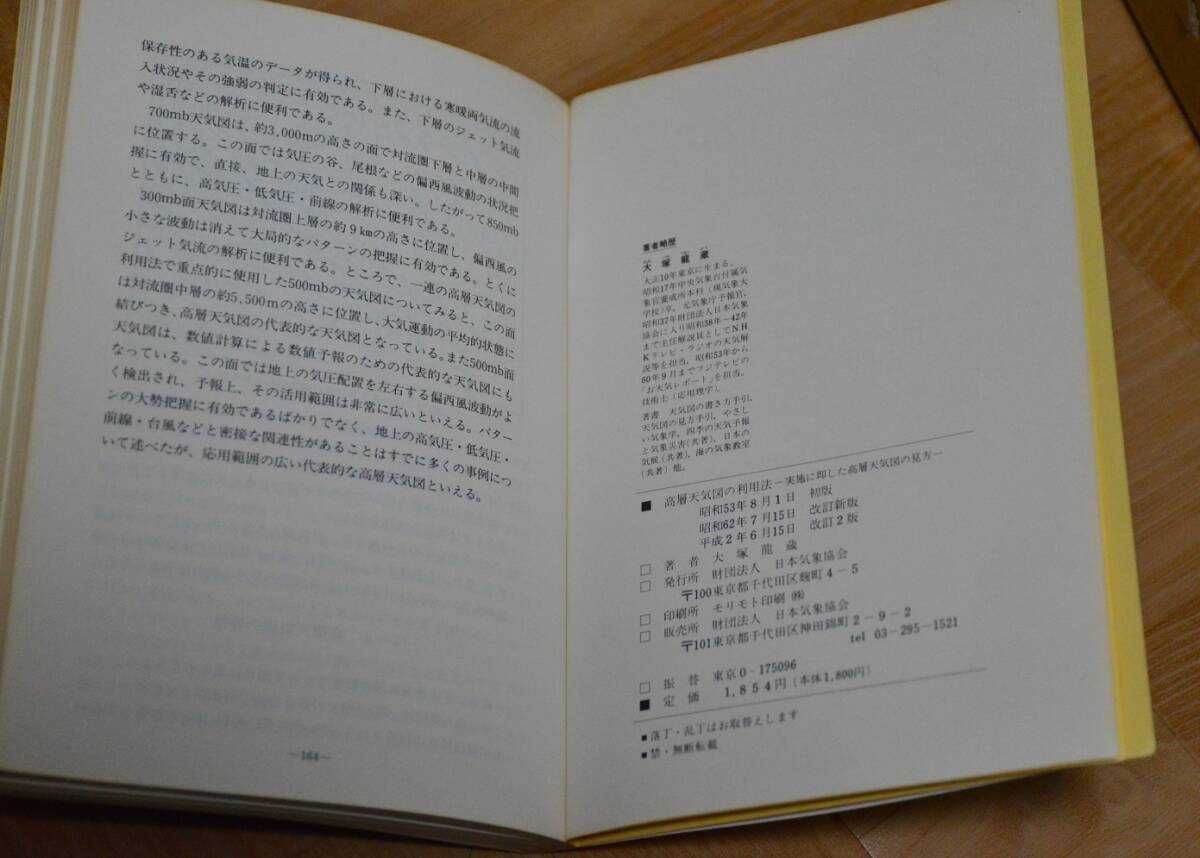 保存性のある気温のデータが得られ、下層における寒暖両気流の流
入状況やその強弱の判定に有効である。また、下層のジェット気流
や湿舌などの解析に便利である。
700mb天気図は、約3,000mの高さの面で対流圏下層と中層の中間
に位置する。この面では気圧の谷、尾根などの偏西風波動の状況把
握に有効で、直接、地上の天気との関係も深い。したがって850mb
とともに、高気圧・低気圧・前線の解析に便利である。
300mb面天気図は対流圏上層の約9㎞の高さに位置し、偏西風の
小さな波動は消えて大局的なパターンの把握に有効である。とくに
ジェット気流の解析に便利である。ところで、一連の高層天気図の
利用法で重点的に使用した500mbの天気図についてみると、この面
は対流圏中層の約5,500mの高さに位置し、大気運動の平均的状態に
結びつき、高層天気図の代表的な天気図となっている。また500mb面
天気図は、数値計算による数値予報のための代表的な天気図にも
なっている。この面では地上の気圧配置を左右する偏西風波動がよ
く検出され、予報上、その活用範囲は非常に広いといえる。パター
ンの大勢把握に有効であるばかりでなく、地上の高気圧・低気圧・
前線・台風などと密接な関連性があることはすでに多くの事例につ
いて述べたが、応用範囲の広い代表的な高層天気図といえる。
—164—
著者略歴
大塚龍蔵
大正10年東京に生まる。
昭和17年中央気象台付属気
象官養成所本科(現気象大
学校)卒。元気象庁予報官。
昭和37年財団法人日本気象
協会に入り昭和38年−42年
まで主任解説員としてNH
Kテレビ・ラジオの天気解
説等を担当、昭和53年から
60年9月までフジテレビの
「お天気レポート」を担当。
技術士(応用理学)。
著書 天気図の書き方手引、
天気図の見方手引、やさし
い気象学、四季の天気予報
と気象災害(共著)、日本の
気候(共著)、海の気象教室
(共著)他。
■ 高層天気図の利用法−実施に即した高層天気図の見方−
昭和53年8月1日 初版
昭和62年7月15日 改訂新版
平成2年6月15日 改訂2版
□ 著者 大塚龍蔵
□ 発行所 財団法人 日本気象協会
〒100東京都千代田区麹町4-5
□ 印刷所 モリモト印刷㈱
□ 販売所 財団法人 日本気象協会
〒101東京都千代田区神田錦町2-9-2
tel 03-295-1521
□ 振替 東京0-175096
■ 定価 1,854円(本体1,800円)
■落丁・乱丁はお取替えします
■禁・無断転載